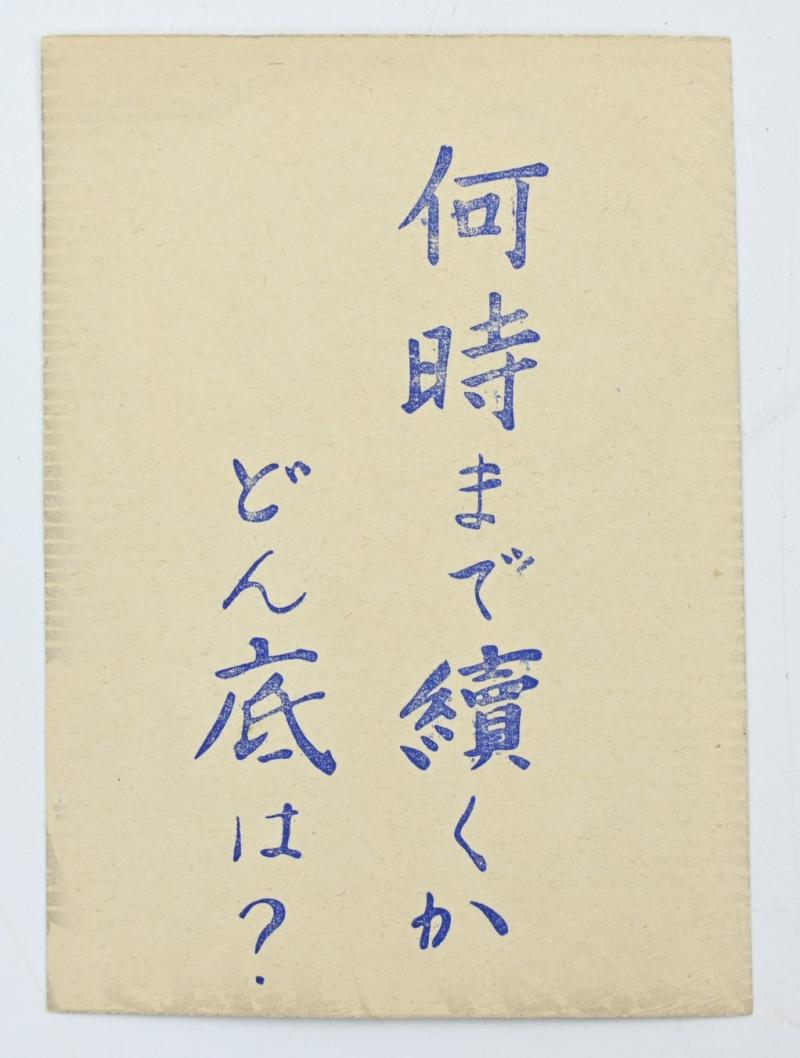 何時まで續くか
どん底は?